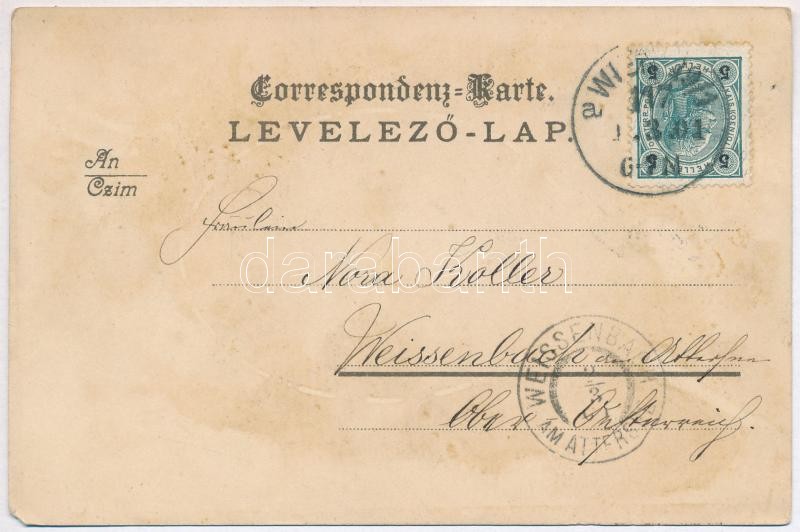 Correspondenz=Karte.
LEVELEZŐ-LAP.
An
Czim
WI
5 5
5 5
6-7N
Fräulein
Nora Koller
Weissenbach am Attersee
Ober Oesterreich.
WEISSENBACH
AM ATTERS
darabanth